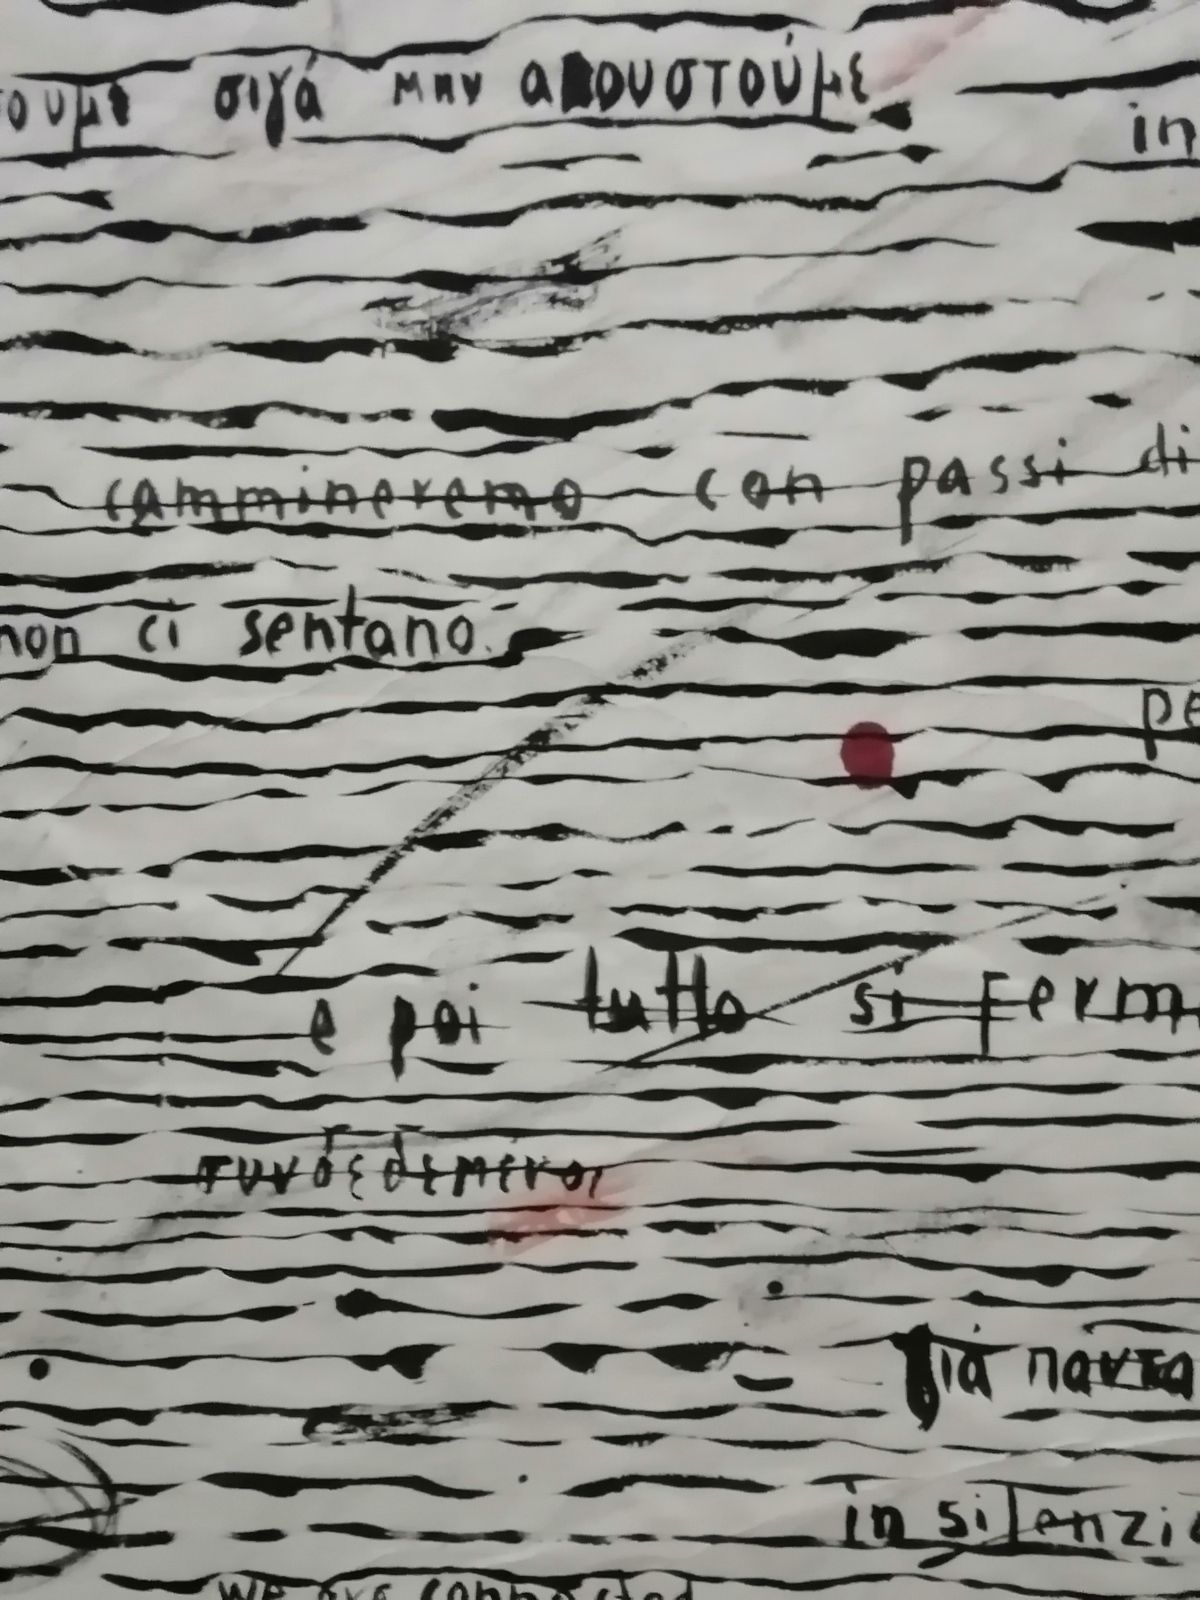 σιγά μην ακουστούμε
in
cammineremo con passi di
non ci sentano.
pe
e poi tutto si ferm
συνδεδεμένοι
για παντα
in silenzio
we are connected